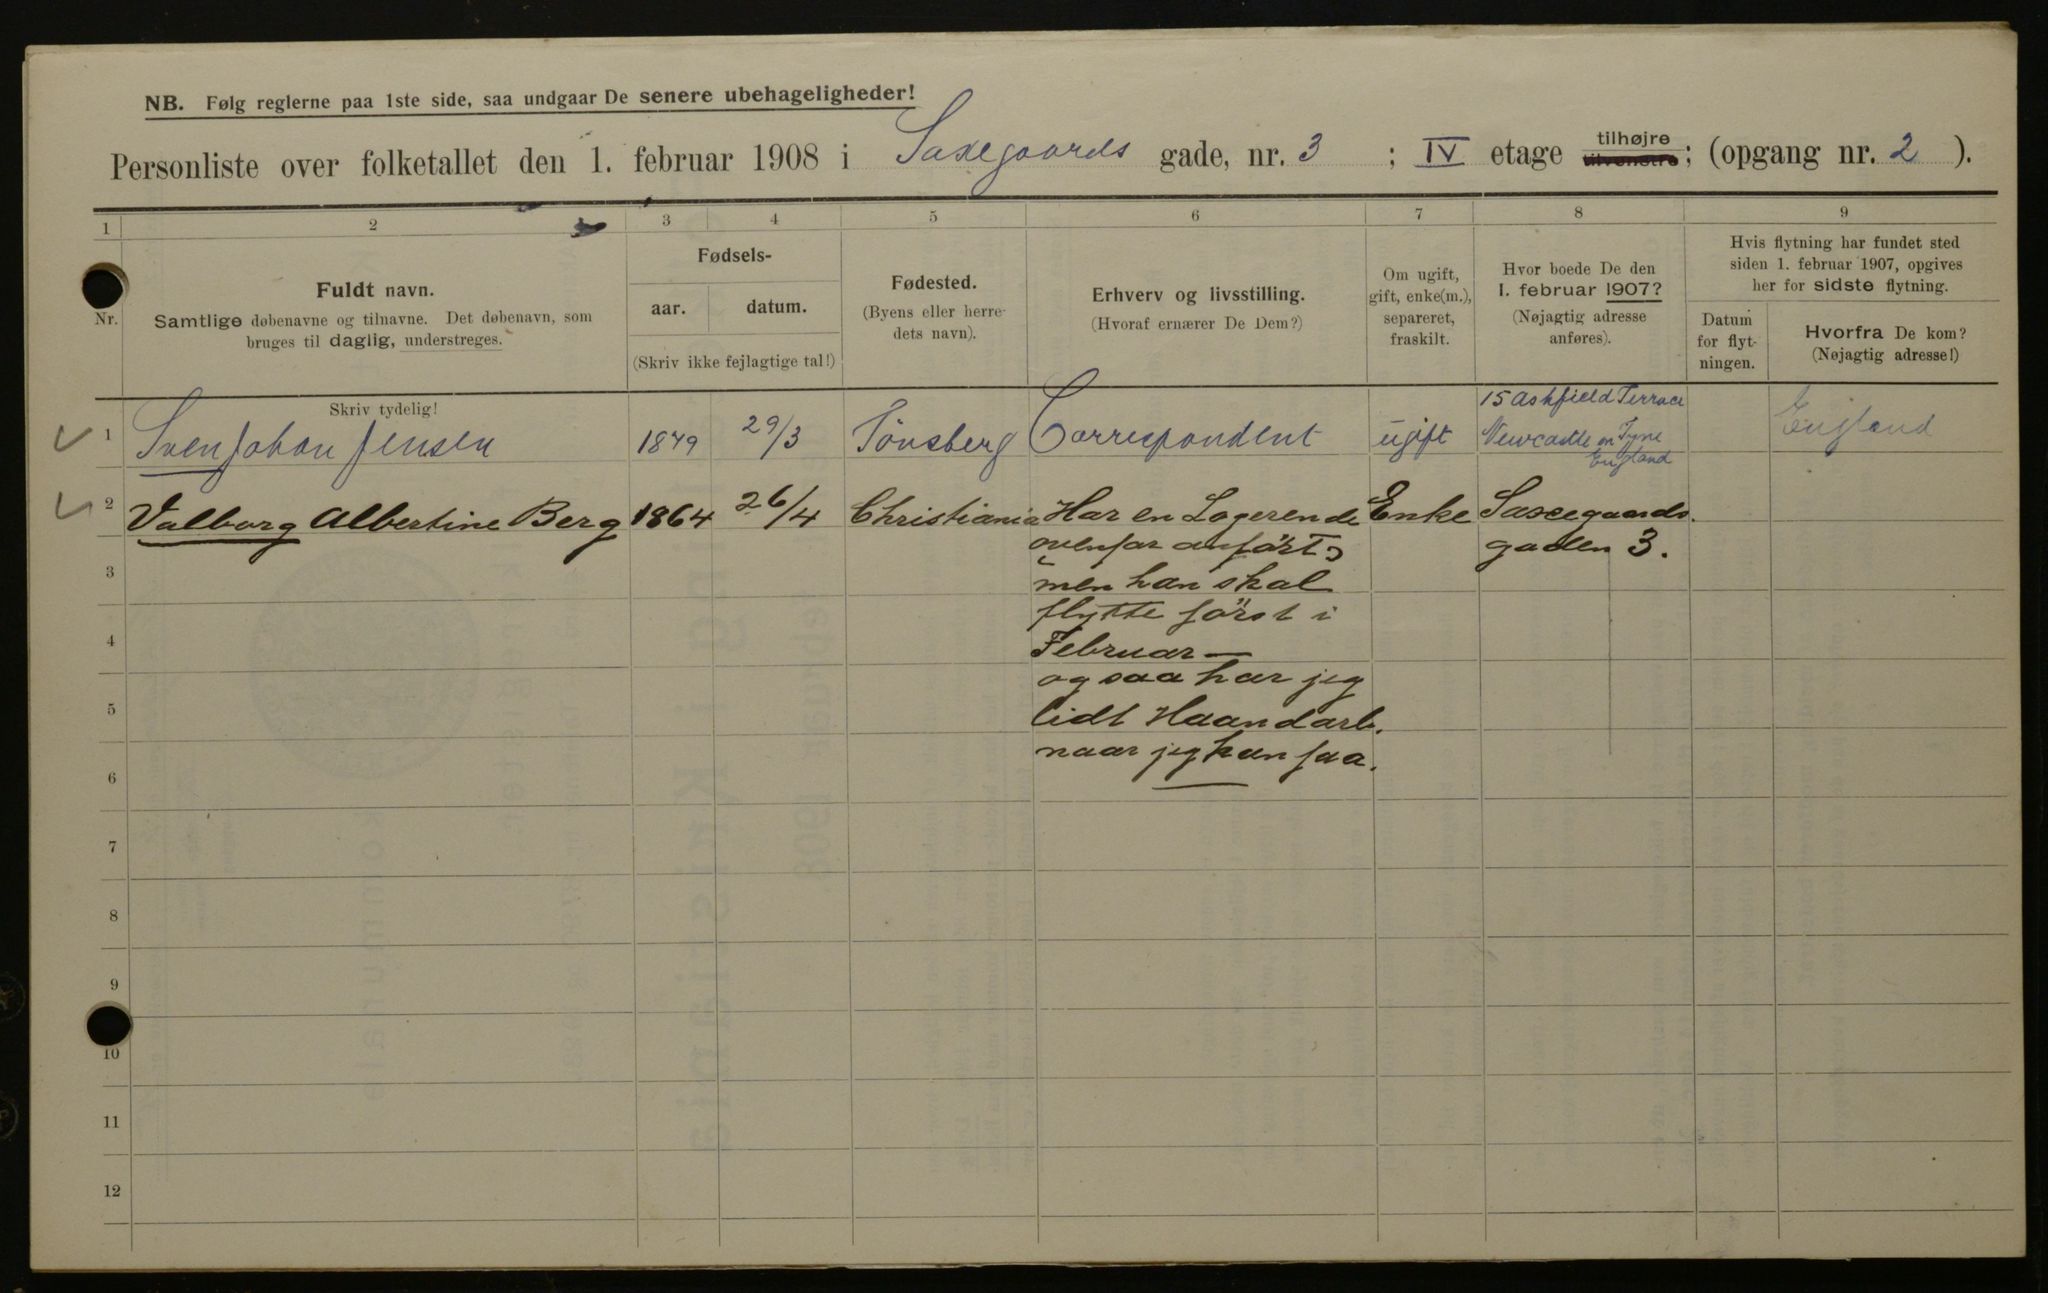 NB. Følg reglerne paa 1ste side, saa undgaar De senere ubehageligheder!
Personliste over folketallet den 1. februar 1908 i Saxegaards gade, nr. 3 ; IV etage tilhøjre tilvenstre; (opgang nr. 2 ).
1 2 3 4 5 6 7 8 9
Nr.
Fuldt navn.
Samtlige døbenavne og tilnavne. Det døbenavn, som
bruges til daglig, understreges.
Skriv tydelig!
Fødsels-
aar. datum.
(Skriv ikke fejlagtige tal!)
Fødested.
(Byens eller herre-
dets navn).
Erhverv og livsstilling.
(Hvoraf ernærer De Dem?)
Om ugift,
gift, enke(m.),
separeret,
fraskilt.
Hvor boede De den
1. februar 1907?
(Nøjagtig adresse
anføres).
Hvis flytning har fundet sted
siden 1. februar 1907, opgives
her for sidste flytning.
Datum
for flyt-
ningen.
Hvorfra De kom?
(Nøjagtig adresse!)
1 Sven Johan Jensen 1879 29/3 Tönsberg Correspondent ugift
15 Ashfield Terrace
Newcastle on Tyne
England
England
2 Valborg Albertine Berg 1864 26/4 Christiania Har en Logerende Enke Saxegaards.
ovenfor anført, gaden 3.
3 men han skal
flytte först i
4 Februar —
og saa har jeg
5 lidt Haandarb.
naar jeg kan faa.
6
7
8
9
10
11
12